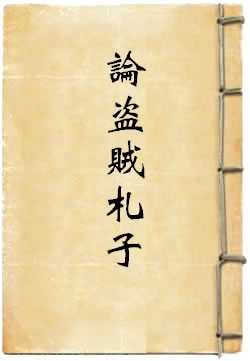 論盜賊札子